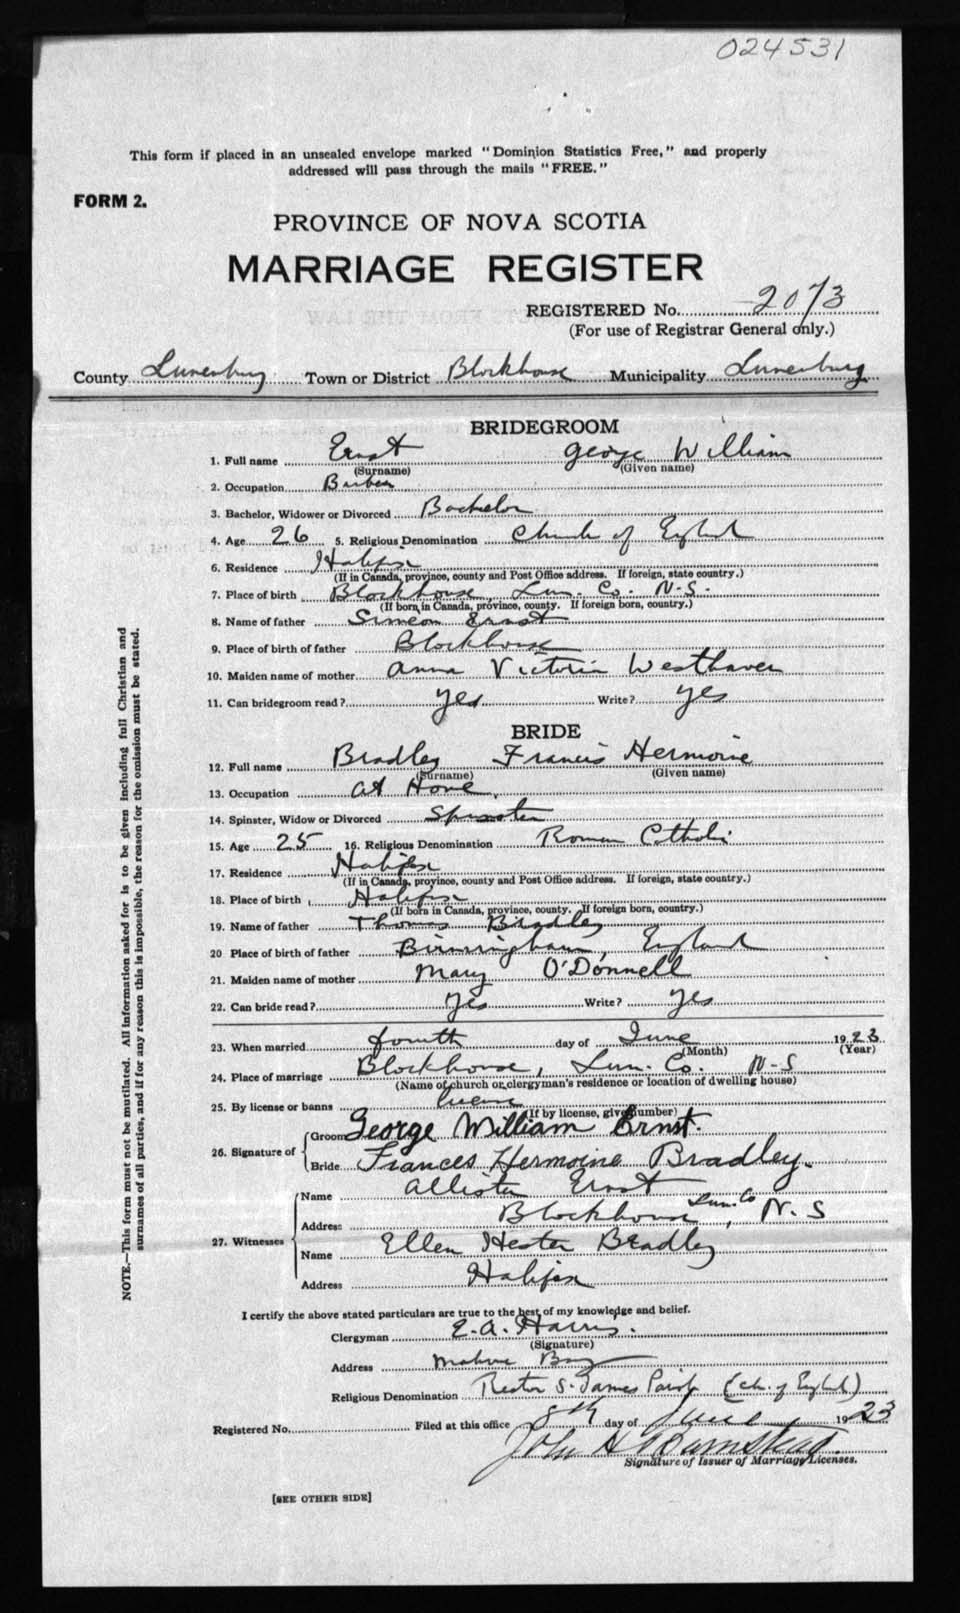 024531
This form if placed in an unsealed envelope marked "Dominion Statistics Free," and properly
addressed will pass through the mails "FREE."
FORM 2.
PROVINCE OF NOVA SCOTIA
MARRIAGE REGISTER
REGISTERED No. 2073
(For use of Registrar General only.)
County Lunenburg Town or District Blockhouse Municipality Lunenburg
BRIDEGROOM
1. Full name Ernst George William
(Surname) (Given name)
2. Occupation Barber
3. Bachelor, Widower or Divorced Bachelor
4. Age 26 5. Religious Denomination Church of England
6. Residence Halifax
(If in Canada, province, county and Post Office address. If foreign, state country.)
7. Place of birth Blockhouse, Lun. Co. N.S.
(If born in Canada, province, county. If foreign born, country.)
8. Name of father Simeon Ernst
9. Place of birth of father Blockhouse
10. Maiden name of mother Anna Victoria Westhaver
11. Can bridegroom read? yes Write? yes
BRIDE
12. Full name Bradley Francis Hermoine
(Surname) (Given name)
13. Occupation at Home.
14. Spinster, Widow or Divorced Spinster
15. Age 25 16. Religious Denomination Roman Catholic
17. Residence Halifax
(If in Canada, province, county and Post Office address. If foreign, state country.)
18. Place of birth Halifax
(If born in Canada, province, county. If foreign born, country.)
19. Name of father Thomas Bradley
20 Place of birth of father Birmingham, England
21. Maiden name of mother Mary O'Donnell
22. Can bride read? yes Write? yes
23. When married fourth day of June 1923
(Month) (Year)
24. Place of marriage Blockhouse, Lun. Co. N-S
(Name of church or clergyman's residence or location of dwelling house)
25. By license or banns license
(If by license, give number)
26. Signature of
Groom George William Ernst.
Bride Frances Hermoine Bradley.
27. Witnesses
Name Allister Ernst
Address Blockhouse, Lun. Co N.S
Name Ellen Hester Bradley
Address Halifax
I certify the above stated particulars are true to the best of my knowledge and belief.
Clergyman E.A. Harris.
(Signature)
Address Mahone Bay
Religious Denomination Rector S. James Parish (Ch. of Engl.d)
Registered No. Filed at this office 8th day of June 1923
John H
Signature of Issuer of Marriage Licenses.
[SEE OTHER SIDE]
NOTE.—This form must not be mutilated. All information asked for is to be given including full Christian and
surnames of all parties, and if for any reason this is impossible, the reason for the omission must be stated.